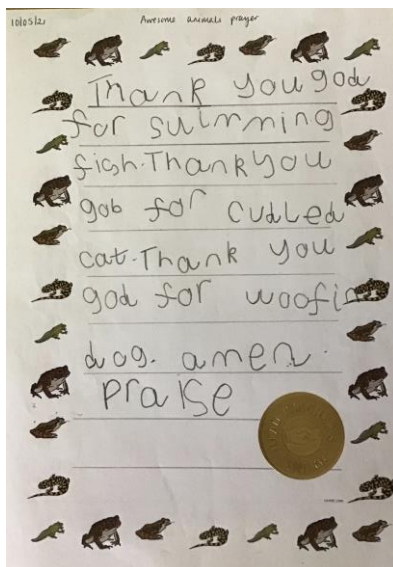 10/05/21
Awesome animals prayer
Thank you god
for suimming
fish. Thank you
gob for cudled
cat. Thank you
god for woofin
dog. amen.
Praise